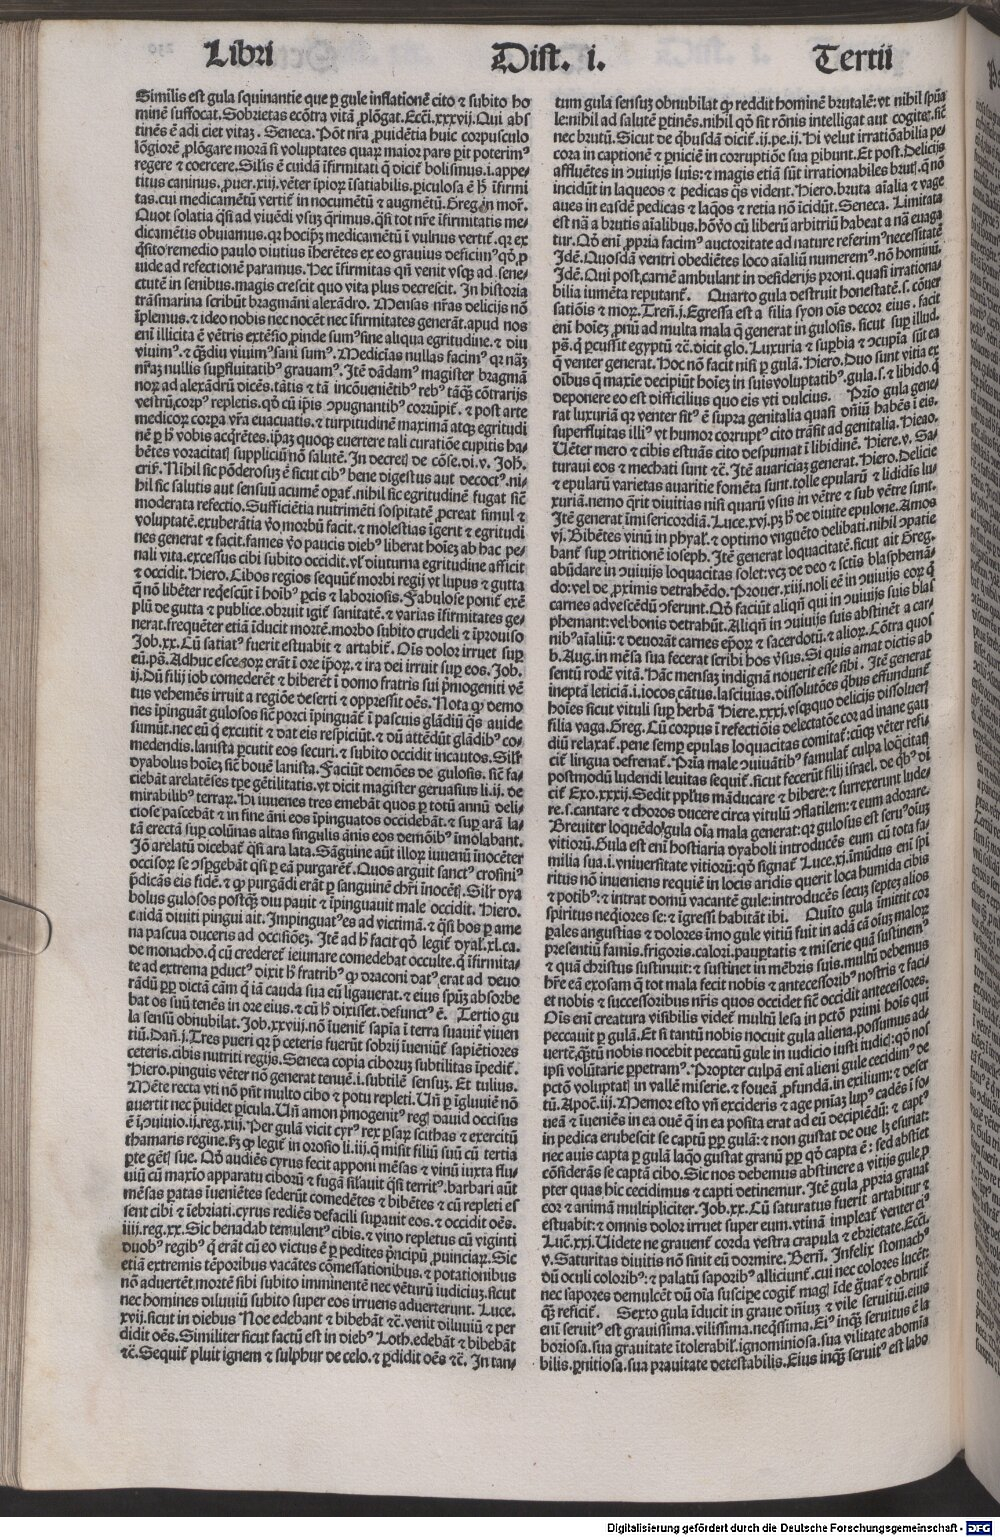 Libri Dist. i. Tertii
Similis est gula squinantie que ꝑ gule inflationē cito ⁊ subito ho
minē suffocat. Sobrietas ecōtra vitā ꝓlōgat. Ecc̄i. xxxvij. Qui abs
tinēs ē adi ciet vitaꝫ. Seneca. Pōt nr̄a ꝓuidētia huic corpusculo
lōgiorē ꝓlōgare morā si voluptates quaꝝ maior pars ꝑit poterimꝰ
regere ⁊ coercere. Silis ē cuidā ifirmitati q̄ dicit̄ bolismus. i. appe-
titus caninus. ꝓuer. xiij. vēter īpioꝝ īsatiabilis. ꝑiculosa ē h̄ īfirmi
tas. cui medicamētū vertit̄ in nocumētū ⁊ augmētū. Greg. in moꝝ.
Quot solatia q̄si ad viuēdi vsuꝫ q̄rimus. q̄si tot nr̄e īfirmitatis me-
dicamētis obuiamus. qꝛ hocip̄ꝫ medicamētū ī vulnus vertit̄. qꝛ ex
q̄sito remedio paulo diutius īherētes ex eo grauius deficimꝰ qd̄ ꝓ
uide ad refectionē paramus. Hec īfirmitas qn̄ venit vsqꝫ ad sene-
ctutē in senibus. magis crescit quo vita plus decrescit. In historia
trāsmarina scribūt bragmāni alexādro. Mensas nr̄as delicijs nō
īplemus. ⁊ ideo nobis nec nocēt nec īfirmitates generāt. apud nos
eni illicita ē vētris extēsio. ꝓinde sumꝰ sine aliqua egritudine. ⁊ diu
viuimꝰ. ⁊ qꝫdiu viuimꝰ sani sumꝰ. Medicīas nullas facimꝰ qꝛ naꝫ
nr̄aꝫ nullis suꝑfluitatibꝰ grauamꝰ. Itē dādamꝰ magister bragmā
noꝝ ad alexādrū dicēs. tātis ⁊ tā incōueniētibꝰ rebꝰ tāqꝫ cōtrarijs
vestrū corpꝰ repletis. qd̄ cū ip̄is ↄpugnantibꝰ corrūpit̄. ⁊ post arte
medicoꝝ corꝑa vr̄a euacuatis. ⁊ turpitudinē maximā atqꝫ egritudi
nē ꝑ h̄ vobis acq̄retes. ip̄aꝫ quoqꝫ euertere tali curatiōe cupitis ha-
bētes voracitat̄ suppliciū nō salutē. In decret̄ de cōse. di. v. Joh̄.
cris̄. Nihil sic pōderosuꝫ ē sicut cibꝰ bene digestus aut decoctꝰ. ni-
hil sic salutis aut sensuū acumē oꝑat̄. nihil sic egritudinē fugat sic̄
moderata refectio. Sufficiētia nutrimēti sospitatē ꝓcreat simul ⁊
voluptatē. exuberātia v̄o morbū facit. ⁊ molestias īgerit ⁊ egritudi
nes generat ⁊ facit. fames v̄o paucis diebꝰ liberat hoīeꝫ ab hac pe-
nali vita. excessus cibi subito occidit. vl̄ diuturna egritudine afficit
⁊ occidit. Hiero. Cibos regios sequūt̄ morbi regij vt lupus ⁊ gutta
q̄ nō libēter reqescūt ī hoībꝰ ꝑcis ⁊ laboriosis. Fabulose ponit̄ exē
plū de gutta ⁊ publice. obruit igit̄ sanitatē. ⁊ varias īfirmitates ge-
nerat. frequēter etiā īducit mortē. morbo subito crudeli ⁊ īprouiso
Job. xx. Cū satiatꝰ fuerit estuabit ⁊ artabit̄. Oīs dolor irruet suꝑ
eū. ps̄. Adhuc esce eoꝝ erāt ī ore ip̄oꝝ. ⁊ ira dei irruit suꝑ eos. Job.
ij. Dū filij iob comederēt ⁊ biberēt ī domo fratris sui ꝓ̄mogeniti vē
tus vehemēs irruit a regiōe deserti ⁊ oppressit oēs. Nota qꝙ demo
nes īpinguāt gulosos sic̄ porci īpinguāt̄ ī pascuis glādiū q̄s auide
sumūt. nec eū q̄ excutit ⁊ dat eis respiciūt. ⁊ dū attēdūt glādibꝰ co-
medendis. lanista ꝑcutit eos securi. ⁊ subito occidit incautos. Silr̄
dyabolus hoīes sic̄ bouē lanista. Faciūt demōes de gulosis. sic̄ fa-
ciebāt arelatēses tp̄e gētilitatis. vt dicit magister geruasius li. ij. de
mirabilibꝰ terraꝝ. Hi iuuenes tres emebāt quos ꝑ totū annū deli-
ciose pascebāt ⁊ in fine āni eos īpinguatos occidebāt. ⁊ suꝑ arā la-
tā erectā suꝑ colūnas altas singulis ānis eos demōibꝰ īmolabant.
Jō arelatū dicebat̄ q̄si ara lata. Sāguine aūt illoꝝ iuuenū īnocēter
occisoꝝ se ↄspgebāt q̄si ꝑ eā purgarēt̄. Quos arguit sanctꝰ crosiniꝰ
p̄dicās eis fidē. ⁊ qꝙ purgādi erāt ꝑ sanguinē chr̄i īnocēt̄. Silr̄ dya
bolus gulosos postqꝫ diu pauit ⁊ īpinguauit male occidit. Hiero.
cuidā diuiti pingui ait. Impinguatꝰ es ad victimā. ⁊ q̄si bos ꝑ ame
na pascua duceris ad occisiōeꝫ. Itē ad h̄ facit qd̄ legit̄ dyal̄. xl. ca.
de monacho. q̄ cū crederet̄ ieiunare comedebat occulte. q̄ īfirmita-
te ad extrema ꝑductꝰ dixit h̄ fratribꝰ qꝙ draconi datꝰ erat ad deuo
rādū ꝑꝑ dictā cām q̄ iā cauda sua eū ligauerat. ⁊ eius sp̄uꝫ absorbe
bat os suū tenēs in ore eius. ⁊ cū h̄ dixisset. defunctꝰ ē. Tertio gu
la sensū obnubilat. Job. xxviij. nō īuenit̄ sapīa ī terra suauit̄ viuen
tiū. Dan̄. j. Tres pueri qꝛ p̄ ceteris fuerūt sobrij īueniūt̄ sapiētiores
ceteris. cibis nutriti regijs. Seneca copia ciboruꝫ subtilitas īpedit̄.
Hiero. pinguis vēter nō generat tenuē. i. subtilē sensuꝫ. Et tulius.
Mēte recta vti nō pn̄t multo cibo ⁊ potu repleti. Un̄ ꝑ īgluuiē nō
auertit nec p̄uidet ꝑicula. Un̄ amon p̄mogenitꝰ reḡ dauid occisus
ē ī ↄuiuio. ij. reg. xiij. Per gulā vicit cyrꝰ rex ꝑsaꝝ scithas ⁊ exercitū
thamaris regine. ẜꝫ qꝙ legit̄ in orosio li. iij. q̄ misit filiū suū cū tertia
ꝑte gēt̄ sue. Qd̄ audiēs cyrus fecit apponi mēsas ⁊ vinū iuxta flu-
uiū cū maxīo apparatu ciborū ⁊ fugā sil̄auit q̄si territꝰ. barbari aūt
mēsas ꝑatas īueniētes sederūt comedētes ⁊ bibētes ⁊ cū repleti es
sent cibi ⁊ īebriati. cyrus rediēs defacili suꝑauit eos. ⁊ occidit oēs.
iiij. reg. xx. Sic benadab temulentꝰ cibis. ⁊ vino repletus cū viginti
duobꝰ regibꝰ q̄ erāt cū eo victus ē ꝑ pedites p̄ncipū ꝓuinciaꝝ. Sic
etiā extremis tēporibus vacātes cōmessationibus. ⁊ potationibus
nō aduertēt. mortē sibi subito imminentē nec vēturū iudiciuꝫ. sicut
nec homines diluuiū subito super eos irruens aduerterunt. Luce.
xvij. sicut in diebus Noe edebant ⁊ bibebāt ⁊c̄. venit diluuiū ⁊ per
didit oēs. Similiter sicut factū est in diebꝰ Loth. edebāt ⁊ bibebāt
⁊c̄. Sequit̄ pluit ignem ⁊ sulphur de celo. ⁊ ꝑdidit oēs ⁊c̄. In tan-
tum gula sensuꝫ obnubilat qꝙ reddit hominē brutalē: vt nihil sp̄ua
le: nihil ad salutē ꝑtinēs. nihil qd̄ sit rōnis intelligat aut cogitet. sic̄
nec brutū. Sicut de q̄busdā dicit̄. ij. pe. ij. Hi velut irratiōabilia pe-
cora in captionē ⁊ ꝑniciē in corruptiōe sua ꝑibunt. Et post. Delicijs
affluētes in ↄuiuijs suis: ⁊ magis etiā sūt irrationabiles brut̄. q̄ nō
incidūt in laqueos ⁊ pedicas q̄s vident. Hiero. bruta aīalia ⁊ vage
aues in easdē pedicas ⁊ laq̄os ⁊ retia nō īcidūt. Seneca. Limitata
est nā a brutis aīalibus. hōv̄o cū liberū arbitriū habeat a nā euaga
tur. Qd̄ eni ꝓpria facimꝰ auctoritate ad nature referimꝰ necessitatē
Idē. Quosdā ventri obediētes loco aīaliū numeremꝰ. nō hominū.
Idē. Qui post carnē ambulant in desiderijs proni. quasi irrationa-
bilia iumēta reputant̄. Quarto gula destruit honestatē. s. cōuer
satiōis ⁊ moꝝ. Tren̄. j. Egressa est a filia syon oīs decor eius. facit
eni hoīeꝫ ꝓnū ad multa mala q̄ generat in gulosis. sicut suꝑ illud.
ps̄. q̄ ꝑcussit egyptū ⁊c̄. dicit glo. Luxuria ⁊ suꝑbia ⁊ ↄcupīa sūt ea
q̄ venter generat. Hoc nō facit nisi ꝑ gulā. Hiero. Duo sunt vitia ex
oībus q̄ maxīe decipiūt hoīeꝫ in suis voluptatibꝰ. gula. s. ⁊ libido. q̄
deponere eo est difficilius quo eis vti dulcius. Prīo gula gene-
rat luxuriā qꝛ venter sitꝰ ē supra genitalia quasi dn̄iū habēs ī eis.
superfluitas illiꝰ vt humor corruptꝰ cito trāsit ad genitalia. Hiero.
Uēter mero ⁊ cibis estuās cito despumat ī libidinē. Hiere. v. Sa-
turaui eos ⁊ mechati sunt ⁊c̄. Itē auariciaꝫ generat. Hiero. Delicie
⁊ epularū varietas auaritie fomēta sunt. tolle epularū ⁊ lididis lu-
xuriā. nemo q̄rit diuitias nisi quarū vsus in vētre ⁊ sub vētre sunt.
Itē generat īmisericordiā. Luce. xvj. pꝫ h̄ de diuite epulone. Amos
vj. Bibētes vinū in phyal̄. ⁊ optimo vnguēto delibati. nihil ↄpatie
bant̄ suꝑ ↄtritionē ioseph. Itē generat loquacitatē. sicut ait Greg.
abūdare in ↄuiuijs loquacitas solet: vcꝫ de deo ⁊ sctīs blasphemā-
do: vel de ꝓximis detrahēdo. Prouer. xiij. noli eē in ↄuiuijs eoꝝ q̄
carnes ad vescēdū ↄferunt. Qd̄ faciūt aliqn̄ qui in ↄuiuijs suis blas
phemant: vel bonis detrahūt. Aliqn̄ in ↄuiuijs suis abstinēt a car-
nibꝰ aīaliū: ⁊ deuorāt carnes ep̄oꝝ ⁊ sacerdotū. ⁊ alioꝝ. Cōtra quos
b. Aug. in mēsa sua fecerat scribi hos v̄sus. Si quis amat dictis ab
sentū rodē vitā. Hāc mensaꝫ indignā nouerit esse sibi. Itē generat
ineptā leticiā. i. iocos. cātus. lasciuias. dissolutōes q̄bus effundunt̄
hoīes sicut vituli suꝑ herbā Hiere. xxxj. vsqꝫquo delicijs dissoluer̄
filia vaga. Greg. Cū corpus ī refectiōis delectatōe cor ad inane gau
diū relaxat̄. pene semꝑ epulas loquacitas comitat̄: cūqꝫ vēter refi-
cit̄ lingua defrenat̄. Prīa male ↄuiuātibꝰ famulat̄ culpa loq̄citat̄
postmodū ludendi leuitas sequit̄. sicut fecerūt filij israel. de q̄bꝰ di
cit̄ Exo. xxxij. Sedit pplꝰs māducare ⁊ bibere: ⁊ surrexerunt lude-
re. s. cantare ⁊ choros ducere circa vitulū ↄflatilem: ⁊ eum adorare.
Breuiter loquēdo: gula oīa mala generat: qꝛ gulosus est seruꝰ oīuꝫ
vitiorū. Gula est eni hostiaria dyaboli introducēs eum cū tota fa-
milia sua. i. vniuersitate vitiorū: qd̄ signat̄ Luce. xj. īmūdus eni sp̄i
ritus nō inueniens requiē in locis aridis querit loca humida cibis
⁊ potibꝰ: ⁊ intrat domū vacantē gule: introducēs secuꝫ septeꝫ alios
spiritus neq̄iores se: ⁊ īgressi habitāt ibi. Quīto gula īmittit cor
ꝑales angustias ⁊ dolores īmo gule vitiū fuit in adā cā oīuꝫ maloꝝ
presentiū famis. frigoris. calori. pauꝑtatis ⁊ miserie quā sustinemꝰ
⁊ quā christus sustinuit: ⁊ sustinet in mēbris suis. multū debemus
hr̄e eā exosam q̄ tot mala fecit nobis ⁊ antecessoribꝰ nostris ⁊ faci-
et nobis ⁊ successoribus nr̄is quos occidet sic̄ occidit antecessores.
Oīs eni creatura visibilis videt̄ multū lesa in pctō primi hois qui
peccauit ꝑ gulā. Et si tantū nobis nocuit gula aliena. possumus ad-
uertē. q̄tū nobis nocebit peccatū gule in iudicio iusti iudic̄: qd̄ nos
ipsi volūtarie ꝑpetram̄. Propter culpā eni alieni gule cecidimꝰ de
pctō voluptat̄ in vallē miserie. ⁊ foueā ꝓfundā. in exilium: ⁊ deser
tū. Apoc̄. iij. Memor esto vn̄ excideris ⁊ age pn̄iaꝫ lupꝰ cadēs ī fo-
ueā ⁊ īueniēs in ea ouē q̄ in ea posita erat ad eū decipiēdū: ⁊ captꝰ
in pedica erubescit se captū ꝑꝑ gulā: ⁊ non gustat de oue lꝫ esuriat:
nec auis capta ꝑ gulā laq̄o gustat granū ꝑꝑ qd̄ capta ē: sed abstīet
cōsiderās se captā cibo. Sic nos debemus abstinere a vitijs gule. ꝓ
pter quas hic cecidimus ⁊ capti detinemur. Itē gula ꝓpria grauat
cor ⁊ animā multipliciter. Job. xx. Cū saturatus fuerit artabitur ⁊
estuabit: ⁊ omnis dolor irruet super eum. vtinā impleat̄ venter eiꝰ
Luc̄. xxj. Uidete ne grauent̄ corda vestra crapula ⁊ ebrietate. Ecc̄i.
v. Saturitas diuitis nō sinit eū dormire. Bern̄. Infelix stomachꝰ
dū oculi coloribꝰ: ⁊ palatū saporibꝰ alliciunt̄. cui nec colores lucēt:
nec sapores demulcēt dū oīa suscipe cogit̄ maḡ īde ḡuat̄ ⁊ obruit̄
qꝫ reficit̄. Sexto gula īducit in graue dn̄iuꝫ ⁊ vile seruitiū. eius
eni seruitꝰ est grauissima. vilissima. neq̄ssima. Eiꝰ inqꝫ seruitus ē la
boriosa. sua grauitate ītolerabil̄. ignominiosa. sua vilitate abomīa
bilis. ꝑnitiosa. sua prauitate detestabilis. Eius inqꝫ seruitꝰ est labo
Digitalisierung gefördert durch die Deutsche Forschungsgemeinschaft - DFG